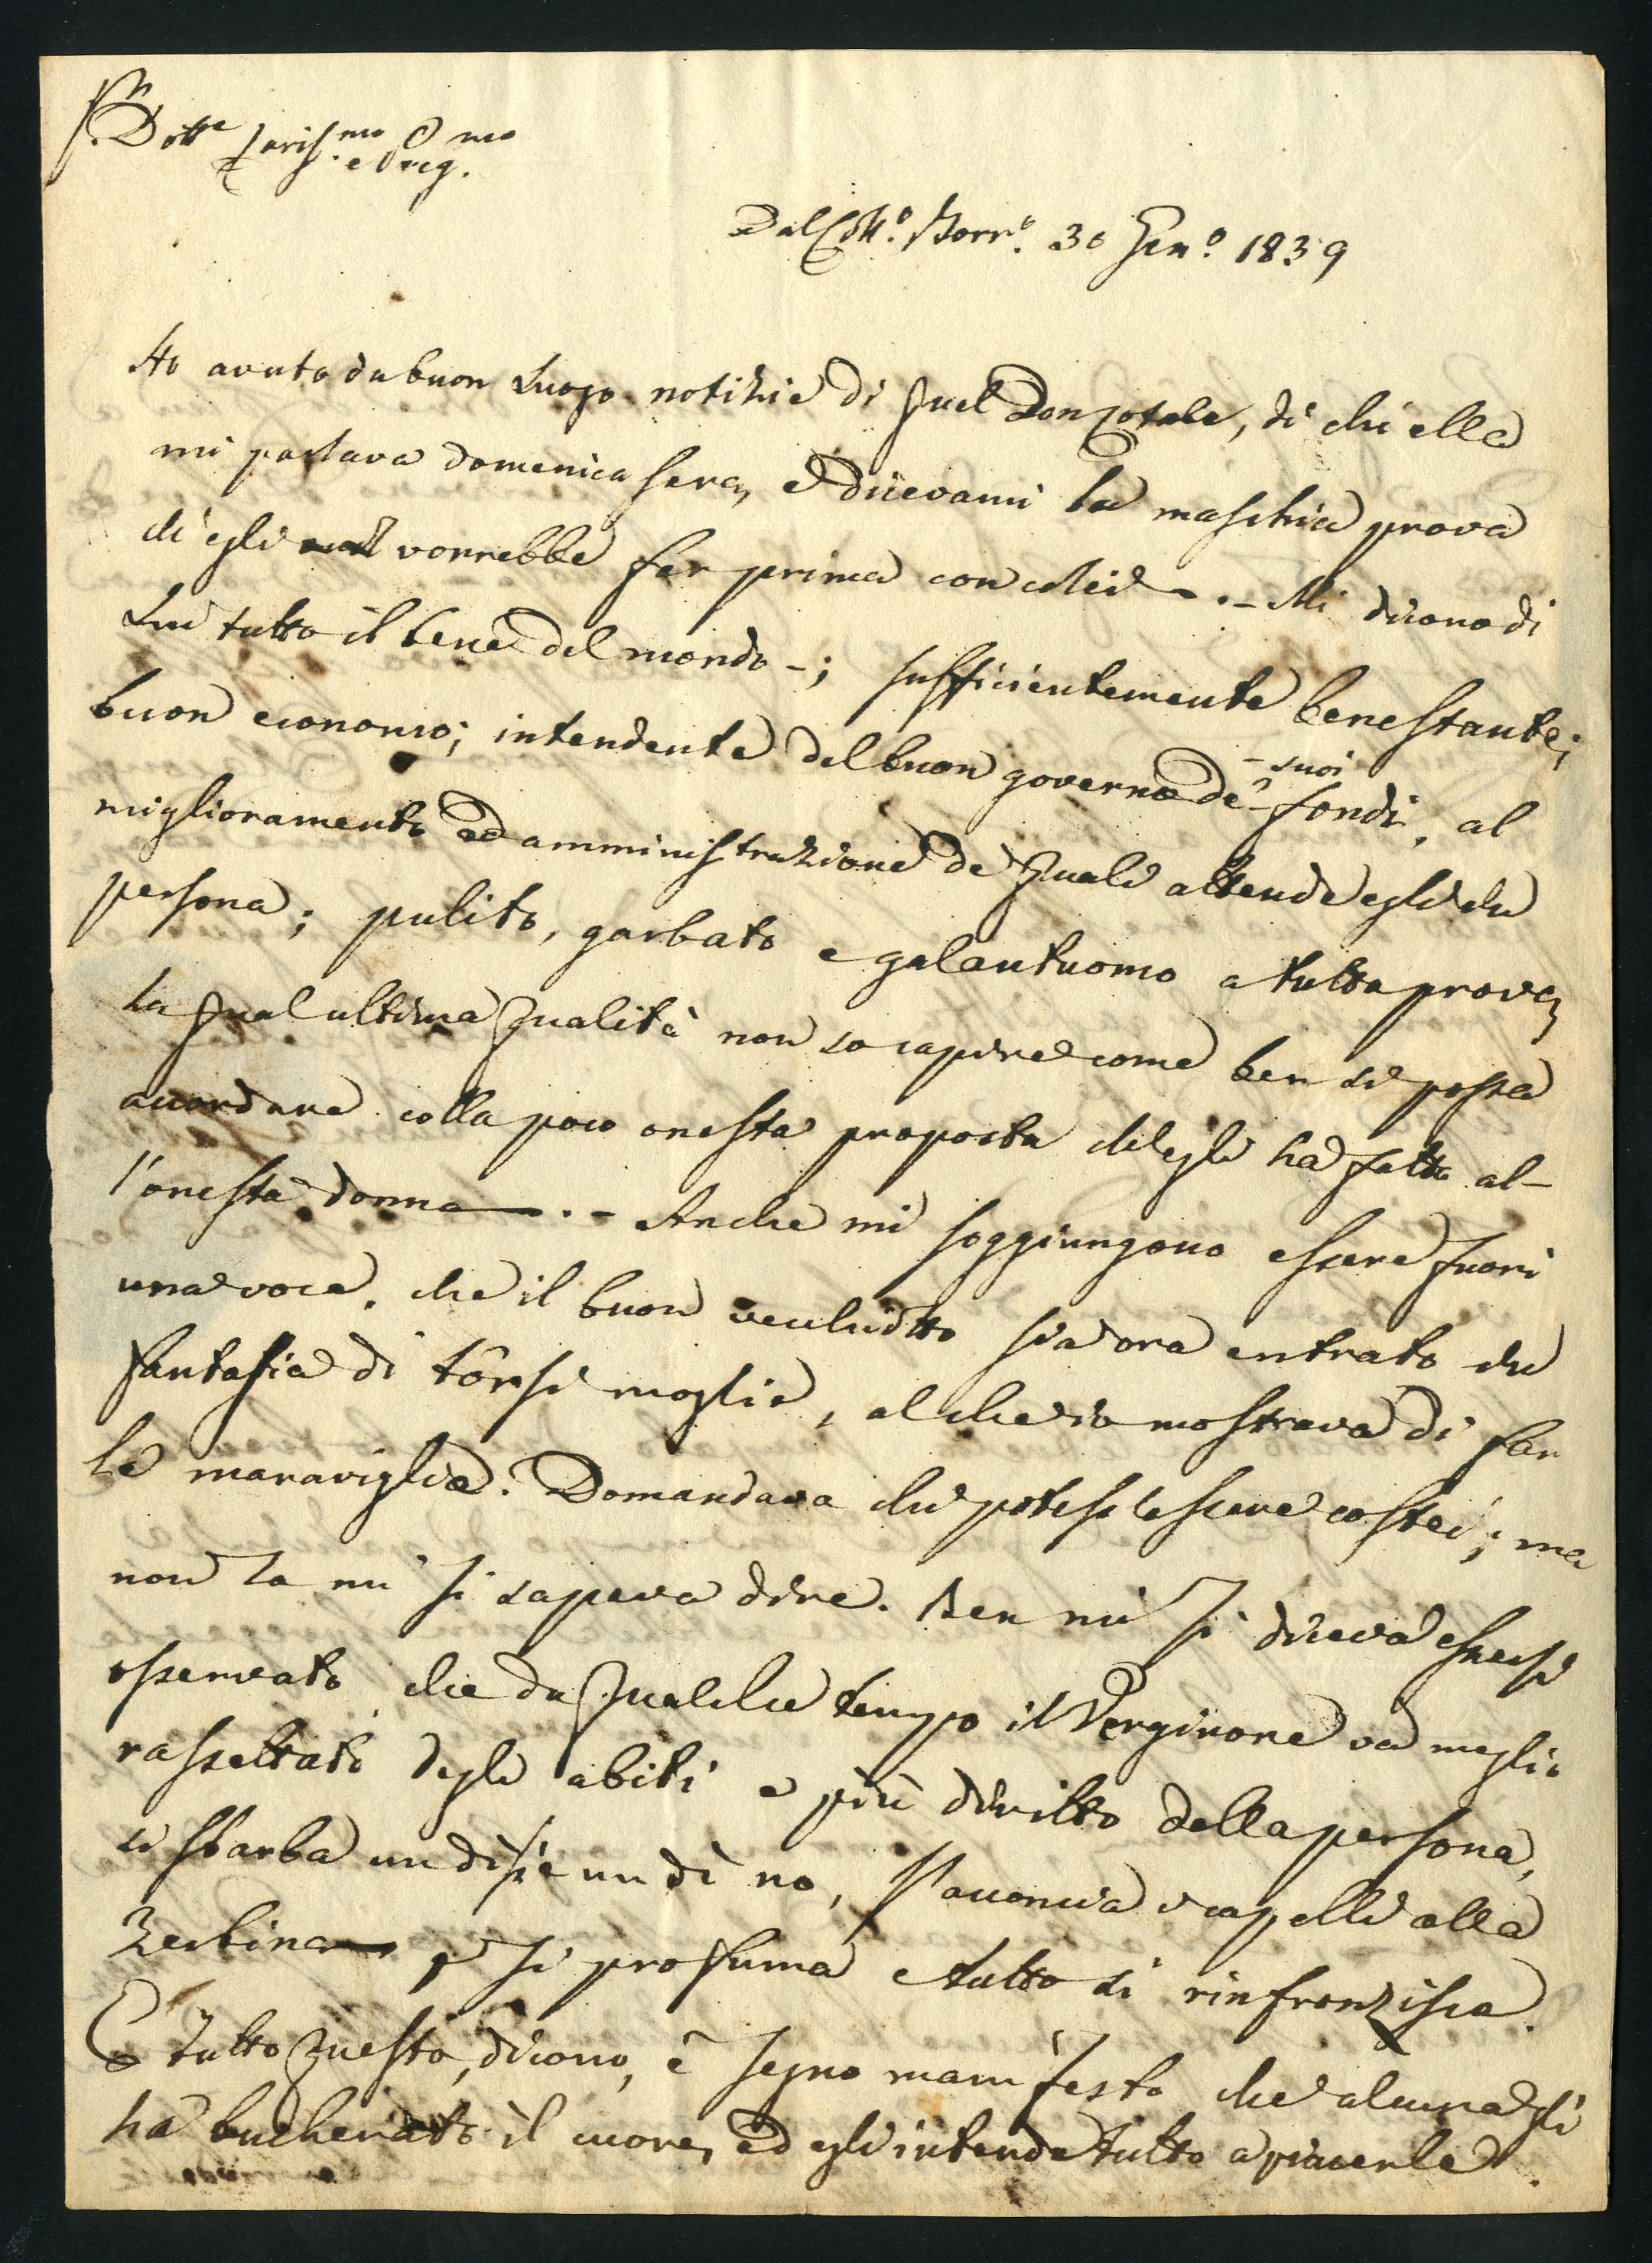 Sr. Dott.e Cariss.mo e Preg.mo
Dal Coll.o Borr.o 30 Gen.o 1839
Ho avuto da buon Luogo notizie di quel Don Cotale, di chi ella
mi parlava domenica sera, e dicevami la maschia prova
ch'egli vorrebbe far prima con colei —. – Mi dicono di
Lui tutto il bene del mondo –; sufficientemente benestante;
buon economo; intendente del buon governo de' suoi fondi, al
miglioramento ed amministrazione de' quali attende egli di
persona; pulito, garbato e galantuomo a tutta prova,
la qual ultima qualità non so capire come ben si possa
accordare colla poco onesta proposta ch'egli ha fatto al-
l'onesta donna —. – Anche mi soggiungono essere fuori
una voce, che il buon vecchiotto sia ora entrato in
fantasia di tôrsi moglie, al che io mostrava di far
le maraviglie. Domandava chi potesse essere costei; ma
non la mi si sapeva dire. Ben mi si diceva essersi
osservato che da qualche tempo il Verginone va meglio
rassettato degli abiti e più diritto della persona,
si sbarba un dì sì e un dì no, s'acconcia i capelli alla
Zerbina e si profuma e tutto si rinfronzisca.
E tutto questo, dicono, è segno manifesto che alcuna gli
ha bucherato il cuore, ed egli intende tutto a piacerle.